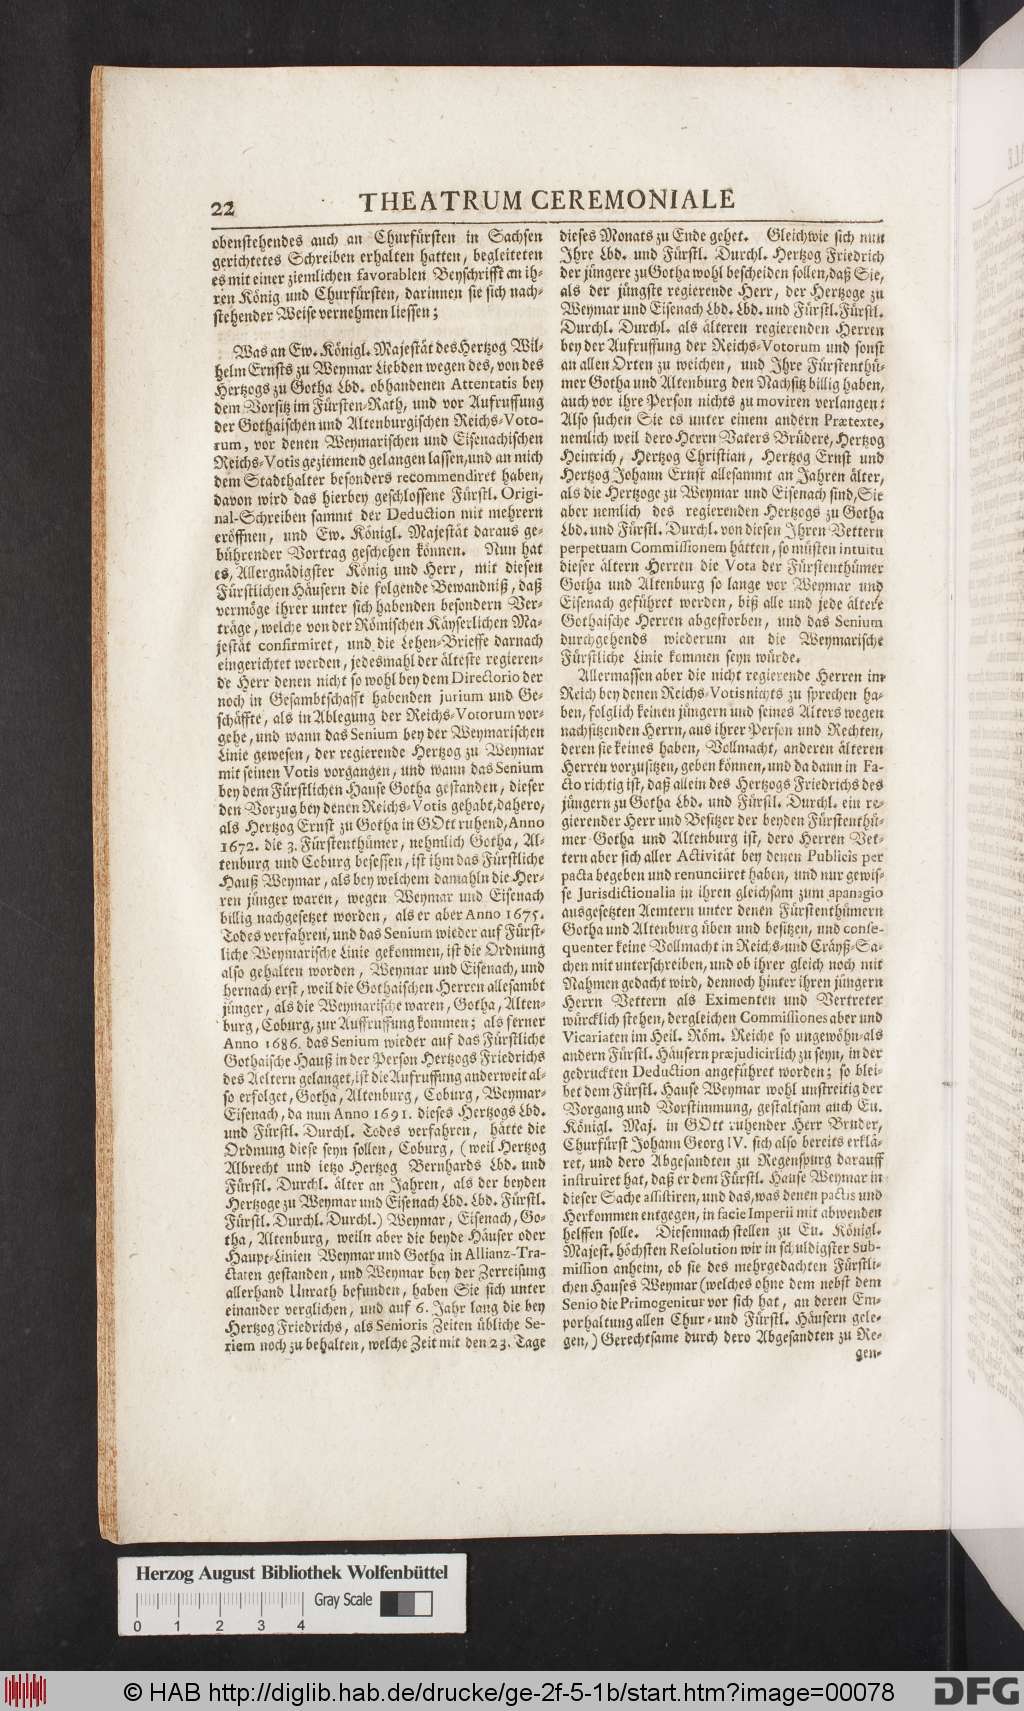 22
THEATRUM CEREMONIALE
obenstehendes auch an Churfürsten in Sachsen
gerichtetes Schreiben erhalten hatten, begleiteten
es mit einer ziemlichen favorablen Beyschrifft an ih-
ren König und Churfürsten, darinnen sie sich nach-
stehender Weise vernehmen liessen;
Was an Ew. Königl. Majestät des Hertzog Wil-
helm Ernsts zu Weymar Liebden wegen des, von des
Hertzogs zu Gotha Lbd. obhandenen Attentatis bey
dem Vorsitz im Fürsten-Rath, und vor Aufruffung
der Gothaischen und Altenburgischen Reichs-Voto-
rum, vor denen Weymarischen und Eisenachischen
Reichs-Votis geziemend gelangen lassen, und an mich
dem Stadthalter besonders recommendiret haben,
davon wird das hierbey geschlossene Fürstl. Origi-
nal-Schreiben sammt der Deduction mit mehrern
eröffnen, und Ew. Königl. Majestät daraus ge-
bührender Vortrag geschehen können. Nun hat
es, Allergnädigster König und Herr, mit diesen
Fürstlichen Häusern die folgende Bewandniß, daß
vermöge ihrer unter sich habenden besondern Ver-
träge, welche von der Römischen Käyserlichen Ma-
jestät confirmiret, und die Lehen-Brieffe darnach
eingerichtet werden, jedesmahl der älteste regieren-
de Herr denen nicht so wohl bey dem Directorio der
noch in Gesambtschafft habenden jurium und Ge-
schäffte, als in Ablegung der Reichs-Votorum vor-
gehe, und wann das Senium bey der Weymarischen
Linie gewesen, der regierende Hertzog zu Weymar
mit seinen Votis vorgangen, und wann das Senium
bey dem Fürstlichen Hause Gotha gestanden, dieser
den Vorzug bey denen Reichs-Votis gehabt, dahero,
als Hertzog Ernst zu Gotha in GOtt ruhend, Anno
1672. die 3. Fürstenthümer, nehmlich Gotha, Al-
tenburg und Coburg besessen, ist ihm das Fürstliche
Hauß Weymar, als bey welchem damahln die Her-
ren jünger waren, wegen Weymar und Eisenach
billig nachgesetzet worden, als er aber Anno 1675.
Todes verfahren, und das Senium wieder auf Fürst-
liche Weymarische Linie gekommen, ist die Ordnung
also gehalten worden, Weymar und Eisenach, und
hernach erst, weil die Gothaischen Herren allesambt
jünger, als die Weymarische waren, Gotha, Alten-
burg, Coburg, zur Auffruffung kommen; als ferner
Anno 1686. das Senium wieder auf das Fürstliche
Gothaische Hauß in der Person Hertzogs Friedrichs
des Aeltern gelanget, ist die Aufruffung anderweit al-
so erfolget, Gotha, Altenburg, Coburg, Weymar-
Eisenach, da nun Anno 1691. dieses Hertzogs Lbd.
und Fürstl. Durchl. Todes verfahren, hätte die
Ordnung diese seyn sollen, Coburg, (weil Hertzog
Albrecht und ietzo Hertzog Bernhards Lbd. und
Fürstl. Durchl. älter an Jahren, als der beyden
Hertzoge zu Weymar und Eisenach Lbd. Lbd. Fürstl.
Fürstl. Durchl. Durchl.) Weymar, Eisenach, Go-
tha, Altenburg, weiln aber die beyde Häuser oder
Haupt-Linien Weymar und Gotha in Allianz-Tra-
ctaten gestanden, und Weymar bey der Zerreisung
allerhand Unrath befunden, haben Sie sich unter
einander verglichen, und auf 6. Jahr lang die bey
Hertzog Friedrichs, als Senioris Zeiten übliche Se-
riem noch zu behalten, welche Zeit mit den 23. Tage
dieses Monats zu Ende gehet. Gleichwie sich nun
Ihre Lbd. und Fürstl. Durchl. Hertzog Friedrich
der jüngere zu Gotha wohl bescheiden sollen, daß Sie,
als der jüngste regierende Herr, der Hertzoge zu
Weymar und Eisenach Lbd. Lbd. und Fürstl. Fürstl.
Durchl. Durchl. als älteren regierenden Herren
bey der Aufruffung der Reichs-Votorum und sonst
an allen Orten zu weichen, und Ihre Fürstenthü-
mer Gotha und Altenburg den Nachsitz billig haben,
auch vor ihre Person nichts zu moviren verlangen:
Also suchen Sie es unter einem andern Prætexte,
nemlich weil dero Herrn Vaters Brüdere, Hertzog
Heinrich, Hertzog Christian, Hertzog Ernst und
Hertzog Johann Ernst allesammt an Jahren älter,
als die Hertzoge zu Weymar und Eisenach sind, Sie
aber nemlich des regierenden Hertzogs zu Gotha
Lbd. und Fürstl. Durchl. von diesen Ihren Vettern
perpetuam Commissionem hätten, so müsten intuitu
dieser ältern Herren die Vota der Fürstenthümer
Gotha und Altenburg so lange vor Weymar und
Eisenach geführet werden, biß alle und jede ältere
Gothaische Herren abgestorben, und das Senium
durchgehends wiederum an die Weymarische
Fürstliche Linie kommen seyn würde.
Allermassen aber die nicht regierende Herren im
Reich bey denen Reichs-Votis nichts zu sprechen ha-
ben, folglich keinen jüngern und seines Alters wegen
nachsitzenden Herrn, aus ihrer Person und Rechten,
deren sie keines haben, Vollmacht, anderen älteren
Herren vorzusitzen, geben können, und da dann in Fa-
cto richtig ist, daß allein des Hertzogs Friedrichs des
jüngern zu Gotha Lbd. und Fürstl. Durchl. ein re-
gierender Herr und Besitzer der beyden Fürstenthü-
mer Gotha und Altenburg ist, dero Herren Vet-
tern aber sich aller Activität bey denen Publicis per
pacta begeben und renunciiret haben, und nur gewis-
se Jurisdictionalia in ihren gleichsam zum apanagio
ausgesetzten Aemtern unter denen Fürstenthümern
Gotha und Altenburg üben und besitzen, und conse-
quenter keine Vollmacht in Reichs-und Cräyß-Sa-
chen mit unterschreiben, und ob ihrer gleich noch mit
Nahmen gedacht wird, dennoch hinter ihren jüngern
Herrn Vettern als Eximenten und Vertreter
würcklich stehen, dergleichen Commissiones aber und
Vicariaten im Heil. Röm. Reiche so ungewöhn-als
andern Fürstl. Häusern præjudicirlich zu seyn, in der
gedruckten Deduction angeführet worden; so blei-
bet dem Fürstl. Hause Weymar wohl unstreitig der
Vorgang und Vorstimmung, gestaltsam auch Eu.
Königl. Maj. in GOtt ruhender Herr Bruder,
Churfürst Johann Georg IV. sich also bereits erklä-
ret, und dero Abgesandten zu Regenspurg darauff
instruiret hat, daß er dem Fürstl. Hause Weymar in
dieser Sache assistiren, und das, was denen pactis und
Herkommen entgegen, in facie Imperii mit abwenden
helffen solle. Diesemnach stellen zu Eu. Königl.
Majest. höchsten Resolution wir in schuldigster Sub-
mission anheim, ob sie des mehrgedachten Fürstli-
chen Hauses Weymar (welches ohne dem nebst dem
Senio die Primogenitur vor sich hat, an deren Em-
porhaltung allen Chur-und Fürstl. Häusern gele-
gen,) Gerechtsame durch dero Abgesandten zu Re-
gen-
Herzog August Bibliothek Wolfenbüttel
Gray Scale
0 1 2 3 4
© HAB http://diglib.hab.de/drucke/ge-2f-5-1b/start.htm?image=00078
DFG